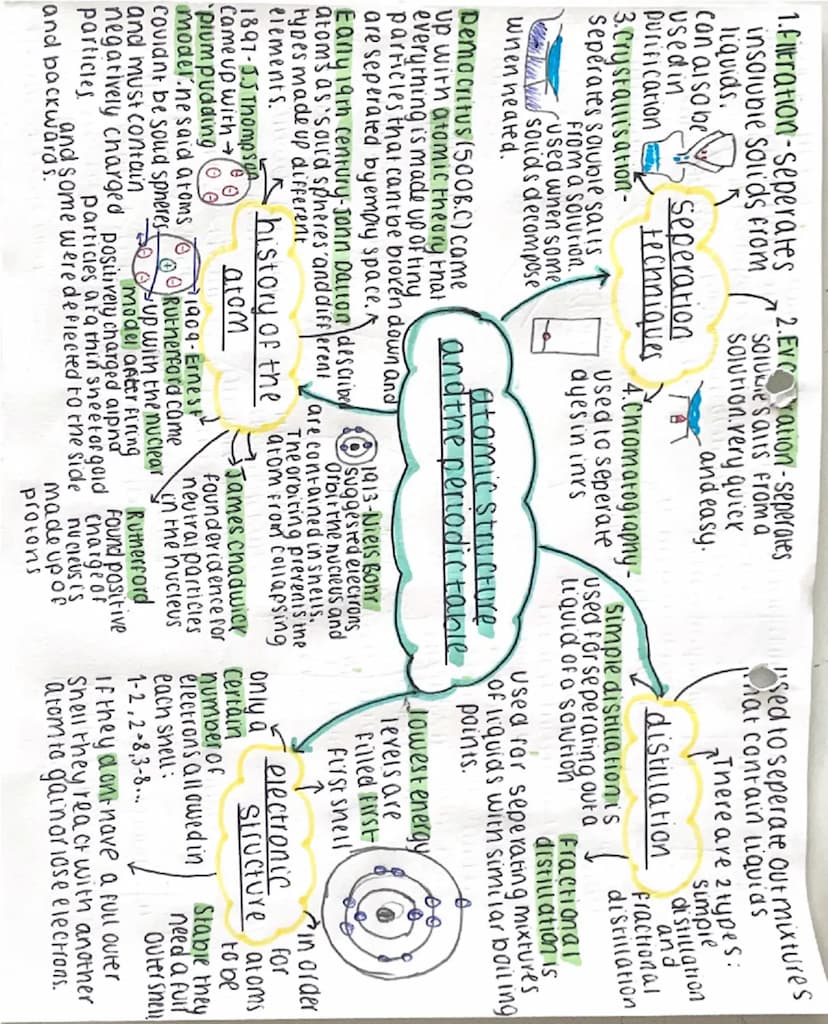 atomic structure
and the periodic table
seperation
techniques
1. filtration - seperates
insoluble solids from
liquids.
can also be
used in
purification
2. - seperates
soluble salts from a
solution. very quick
and easy.
3. crystallisation -
seperates soluble salts
from a solution.
used when some
solids decompose
when heated.
4. chromatography -
used to seperate
dyes in inks
distillation
used to seperate out mixtures
that contain liquids
There are 2 types:
simple
distillation
and
fractional
distillation
simple distillation is
used for seperating out a
liquid of a solution
Fractional
distillation is
used for seperating mixtures
of liquids with similar boiling
points.
history of the
atom
Democritus (500B.C) came
up with atomic theory that
everything is made up of tiny
particles that cant be broken down and
are seperated by empty space.
Early 19th century - John Dalton described
atoms as 'solid spheres' and different
types made up different
elements.
1897 - JJ Thompson
came up with →
'plum pudding
model' he said atoms
couldnt be solid spheres
and must contain
negatively charged
particles
1909 - Ernest
Rutherford came
up with the nuclear
model after firing
positively charged alpha
particles at a thin sheet of gold
and some were deflected to the side
and backwards.
1913 - Niels Bohr
suggested electrons
orbit the nucleus and
are contained in shells.
The orbiting prevents the
atom from collapsing
James Chadwick
found evidence for
neutral particles
in the nucleus
Rutherford
found positive
charge of
nucleus is
made up of
protons
electronic
structure
lowest energy
levels are
filled first -
first shell
only a
certain
number of
electrons allowed in
each shell:
1-2, 2-8, 3-8...
In order
for
atoms
to be
stable they
need a full
outer shell
If they dont have a full outer
shell they react with another
atom to gain or lose electrons.